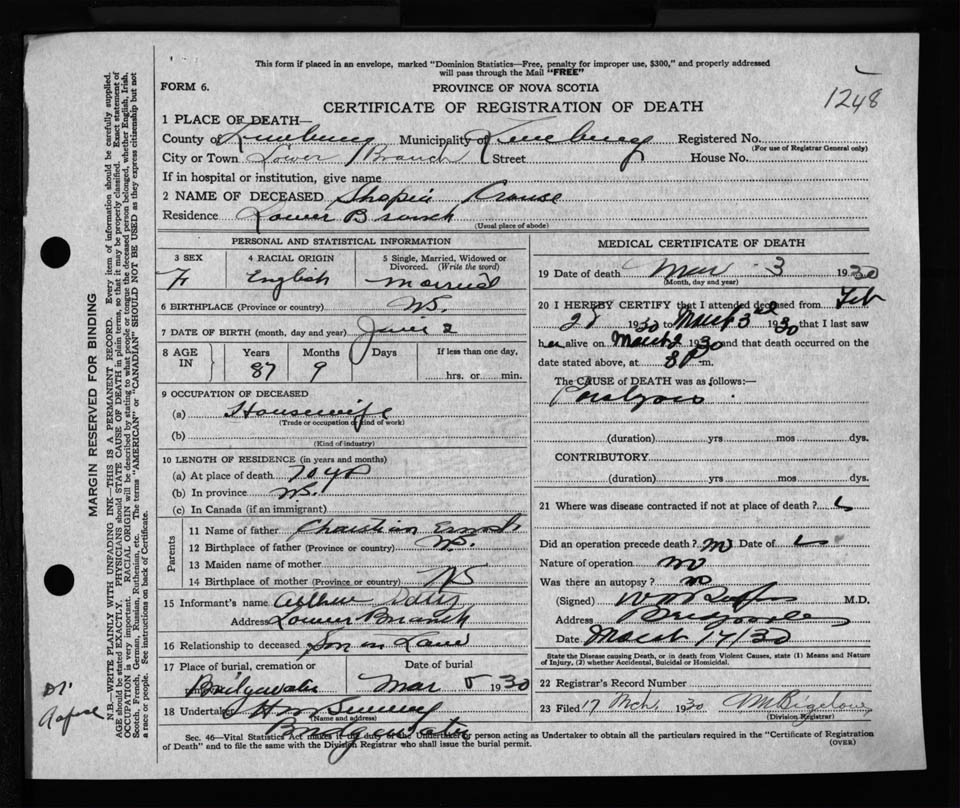 This form if placed in an envelope, marked "Dominion Statistics—Free, penalty for improper use, $300," and properly addressed
will pass through the Mail "FREE"
1248
FORM 6.
PROVINCE OF NOVA SCOTIA
CERTIFICATE OF REGISTRATION OF DEATH
1 PLACE OF DEATH—
County of Lunenburg Municipality of Lunenburg Registered No.
(For use of Registrar General only)
City or Town Lower Branch Street House No.
If in hospital or institution, give name
2 NAME OF DECEASED Shopia Crouse
Residence Lower Branch
(Usual place of abode)
PERSONAL AND STATISTICAL INFORMATION
3 SEX 4 RACIAL ORIGIN 5 Single, Married, Widowed or
Divorced. (Write the word)
F English Married
6 BIRTHPLACE (Province or country) N.S.
7 DATE OF BIRTH (month, day and year) June 2
8 AGE IN Years Months Days If less than one day,
87 9 hrs. or min.
9 OCCUPATION OF DECEASED
(a) Housewife
(Trade or occupation or kind of work)
(b)
(Kind of industry)
10 LENGTH OF RESIDENCE (in years and months)
(a) At place of death 70 yrs
(b) In province N.S.
(c) In Canada (if an immigrant)
Parents
11 Name of father Christian Ernst
12 Birthplace of father (Province or country) N.S.
13 Maiden name of mother
14 Birthplace of mother (Province or country) NS
15 Informant's name
Address Lower Branch
16 Relationship to deceased Son in Law
17 Place of burial, cremation or Date of burial
Bridgewater Mar 5 1930
18 Undertaker
(Name and address)
Bridgewater
MEDICAL CERTIFICATE OF DEATH
19 Date of death Mar 3 1930
(Month, day and year)
20 I HEREBY CERTIFY that I attended deceased from Feb
28 1930 to March 3rd 1930 that I last saw
her alive on March 2 1930 and that death occurred on the
date stated above, at 8 P m.
The CAUSE OF DEATH was as follows:
Paralysis
(duration) yrs mos dys.
CONTRIBUTORY
(duration) yrs mos dys.
21 Where was disease contracted if not at place of death?
Did an operation precede death? no Date of
Nature of operation no
Was there an autopsy? no
(Signed) M.D.
Address
Date March 17/30
State the Disease causing Death, or in death from Violent Causes, state (1) Means and Nature
of Injury, (2) whether Accidental, Suicidal or Homicidal.
22 Registrar's Record Number
23 Filed 17 Mch 1930 M Bigelow
(Division Registrar)
Sec. 46—Vital Statistics Act makes it the duty of the Undertaker or person acting as Undertaker to obtain all the particulars required in the "Certificate of Registration
of Death" and to file the same with the Division Registrar who shall issue the burial permit.
(OVER)
MARGIN RESERVED FOR BINDING
N.B.—WRITE PLAINLY WITH UNFADING INK—THIS IS A PERMANENT RECORD. Every item of information should be carefully supplied.
AGE should be stated EXACTLY. PHYSICIANS should STATE CAUSE OF DEATH in plain terms, so that it may be properly classified. Exact statement of
OCCUPATION is very important. RACIAL ORIGIN will be described by stating to what people or tongue the deceased person belonged, whether English, Irish,
Scotch, French, German, Russian, Ruthenian, etc. The terms "AMERICAN" or "CANADIAN" SHOULD NOT BE USED as they express citizenship but not
a race or people. See instructions on back of Certificate.